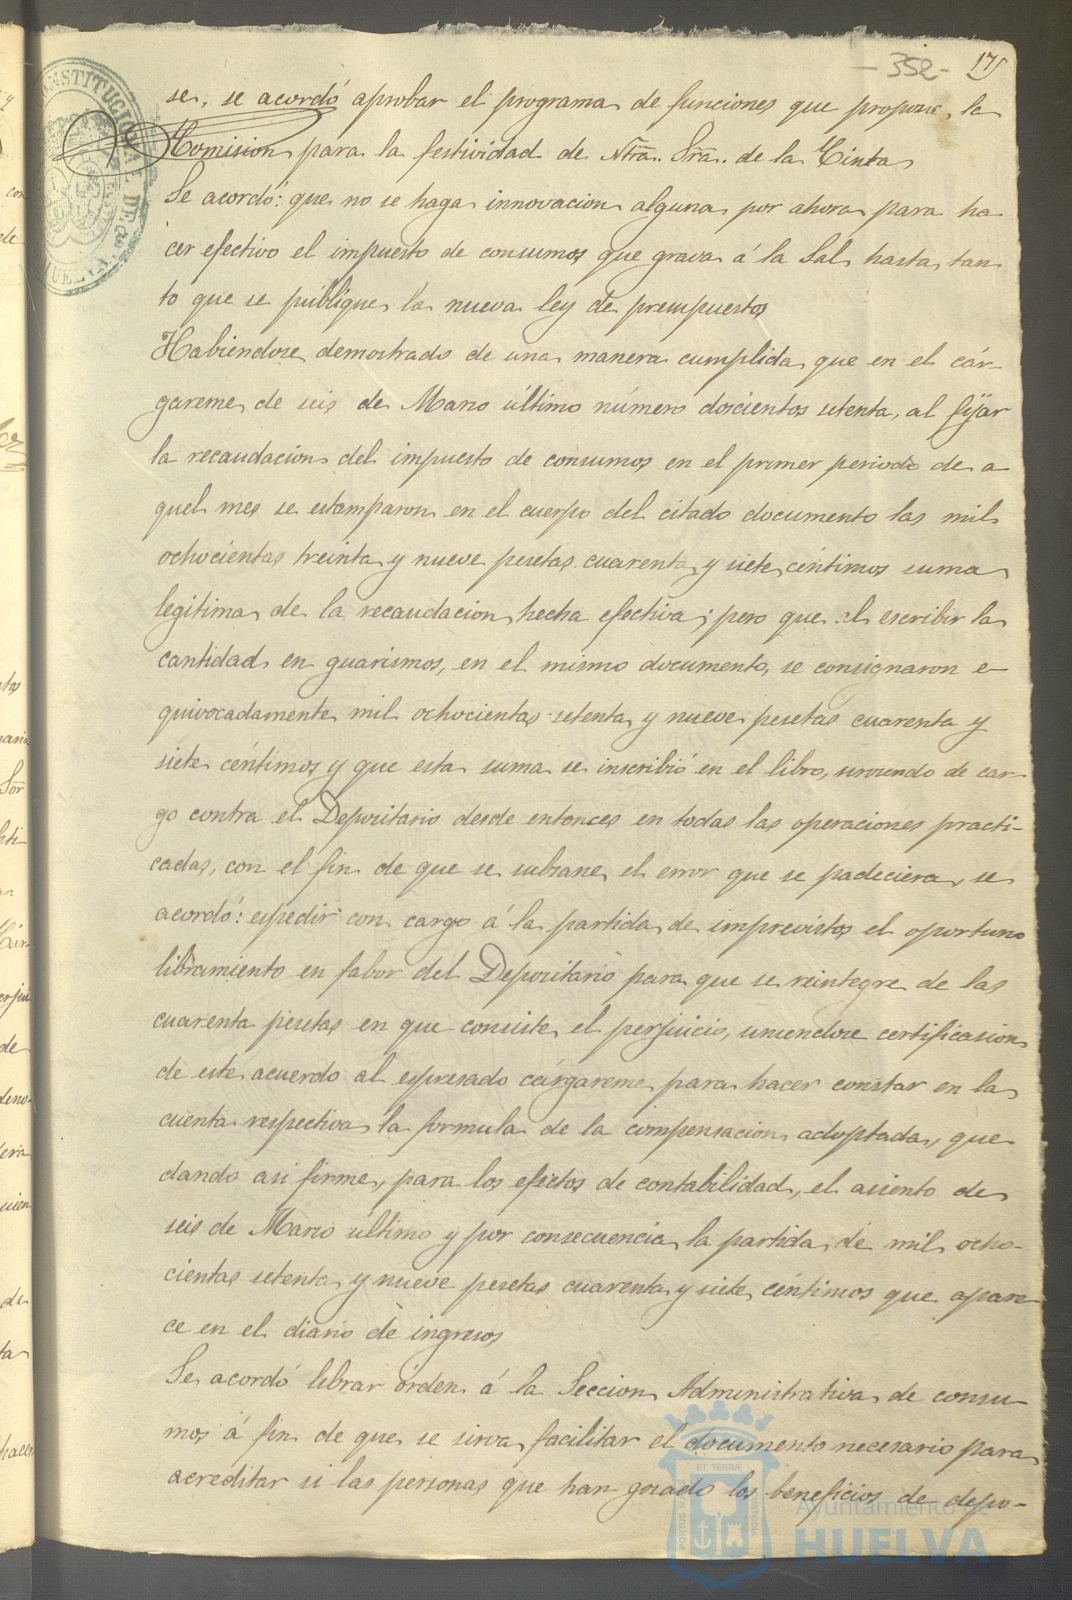 -352- 175
se, se acordó aprobar el programa de funciones que propone la
Comision para la festividad de Ntra. Sra. de la Cinta
Se acordó: que no se haga innovacion alguna por ahora para ha
cer efectivo el impuesto de consumos que grava á la Sal hasta tan
to que se publique la nueva ley de presupuestos
Habiendose demostrado de una manera cumplida que en el cár-
gareme de seis de Marzo último número doscientos setenta, al fijar
la recaudacion del impuesto de consumos en el primer periodo de a
quel mes se estamparon en el cuerpo del citado documento las mil
ochocientas treinta y nueve pesetas cuarenta y siete céntimos suma
legitima de la recaudacion hecha efectiva; pero que al escribir la
cantidad en guarismos, en el mismo documento, se consignaron e-
quivocadamente mil ochocientas setenta y nueve pesetas cuarenta y
siete céntimos y que esta suma se inscribió en el libro, sirviendo de car-
go contra el Depositario desde entonces en todas las operaciones practi-
cadas, con el fin de que se subsane el error que se padeciera, se
acordó: espedir con cargo á la partida de imprevistos el oportuno
libramiento en fabor del Depositario para que se reintegre de las
cuarenta pesetas en que consiste el perjuicio, uniendose certificasion
de este acuerdo al espresado cárgareme para hacer constar en la
cuenta respectiva la formula de la compensacion adoptada, que
dando asi firme, para los efectos de contabilidad, el asiento de
seis de Marzo último y por consecuencia la partida de mil ocho-
cientas setenta y nueve pesetas cuarenta y siete céntimos que apare
ce en el diario de ingresos
Se acordó librar órden á la Seccion Administrativa de consu-
mos á fin de que se sirva facilitar el documento necesario para
acreditar si las personas que han gozado los beneficios de depo-
ET TERRÆ
Ayuntamiento de
HUELVA